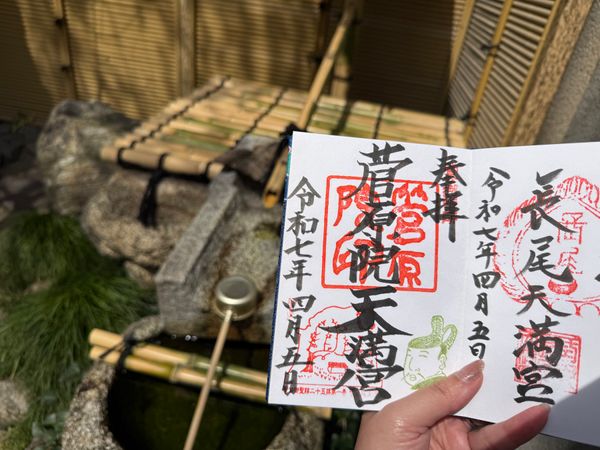 長尾天満宮
令和七年四月五日
奉拝
菅原院天満宮
菅原院印
令和七年四月五日